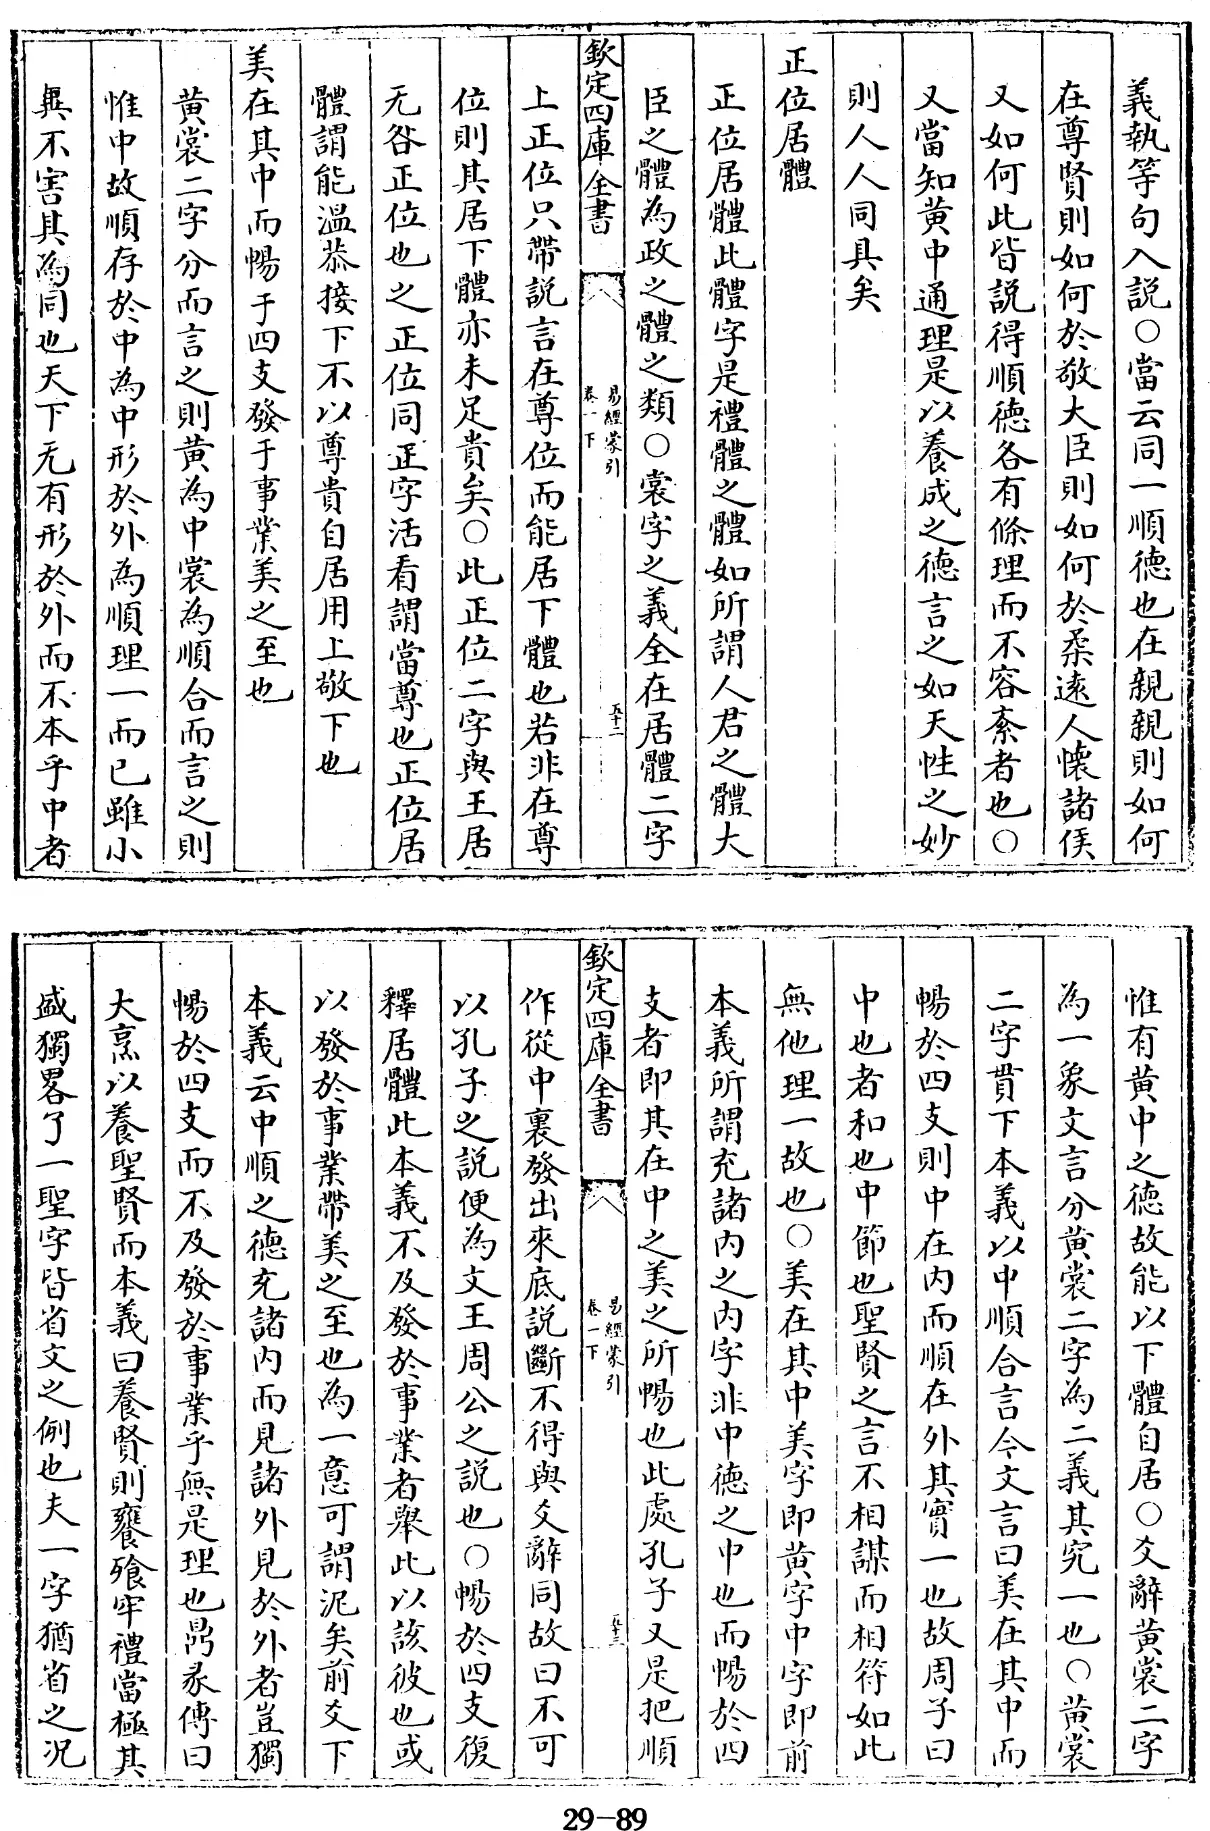 義執等句入説○當云同一順徳也在親親則如何
在尊賢則如何於敬大臣則如何於柔逺人懐諸侯
又如何此皆説得順徳各有條理而不容紊者也○
又當知黄中通理是以養成之徳言之如天性之妙
則人人同具矣
正位居體
正位居體此體字是禮體之體如所謂人君之體大
臣之體為政之體之類○裳字之義全在居體二字
欽定四庫全書
易經蒙引
卷一下
五十二
上正位只帶説言在尊位而能居下體也若非在尊
位則其居下體亦未足貴矣○此正位二字與王居
无咎正位也之正位同正字活看謂當尊也正位居
體謂能温恭接下不以尊貴自居用上敬下也
美在其中而暢于四支發于事業美之至也
黄裳二字分而言之則黄為中裳為順合而言之則
惟中故順存於中為中形於外為順理一而已雖小
異不害其為同也天下无有形於外而不本乎中者
惟有黄中之徳故能以下體自居○爻辭黄裳二字
為一象文言分黄裳二字為二義其究一也○黄裳
二字貫下本義以中順合言今文言曰美在其中而
暢於四支則中在内而順在外其實一也故周子曰
中也者和也中節也聖賢之言不相謀而相符如此
無他理一故也○美在其中美字即黄字中字即前
本義所謂充諸内之内字非中徳之中也而暢於四
支者即其在中之美之所暢也此處孔子又是把順
欽定四庫全書
易經蒙引
卷一下
五十三
作從中裏發出來底説斷不得與爻辭同故曰不可
以孔子之説便為文王周公之説也○暢於四支復
釋居體此本義不及發於事業者舉此以該彼也或
以發於事業帶美之至也為一意可謂泥矣前爻下
本義云中順之徳充諸内而見諸外見於外者豈獨
暢於四支而不及發於事業乎無是理也鼎彖傳曰
大烹以養聖賢而本義曰養賢則饔飱牢禮當極其
盛獨畧了一聖字皆省文之例也夫一字猶省之况
29-89